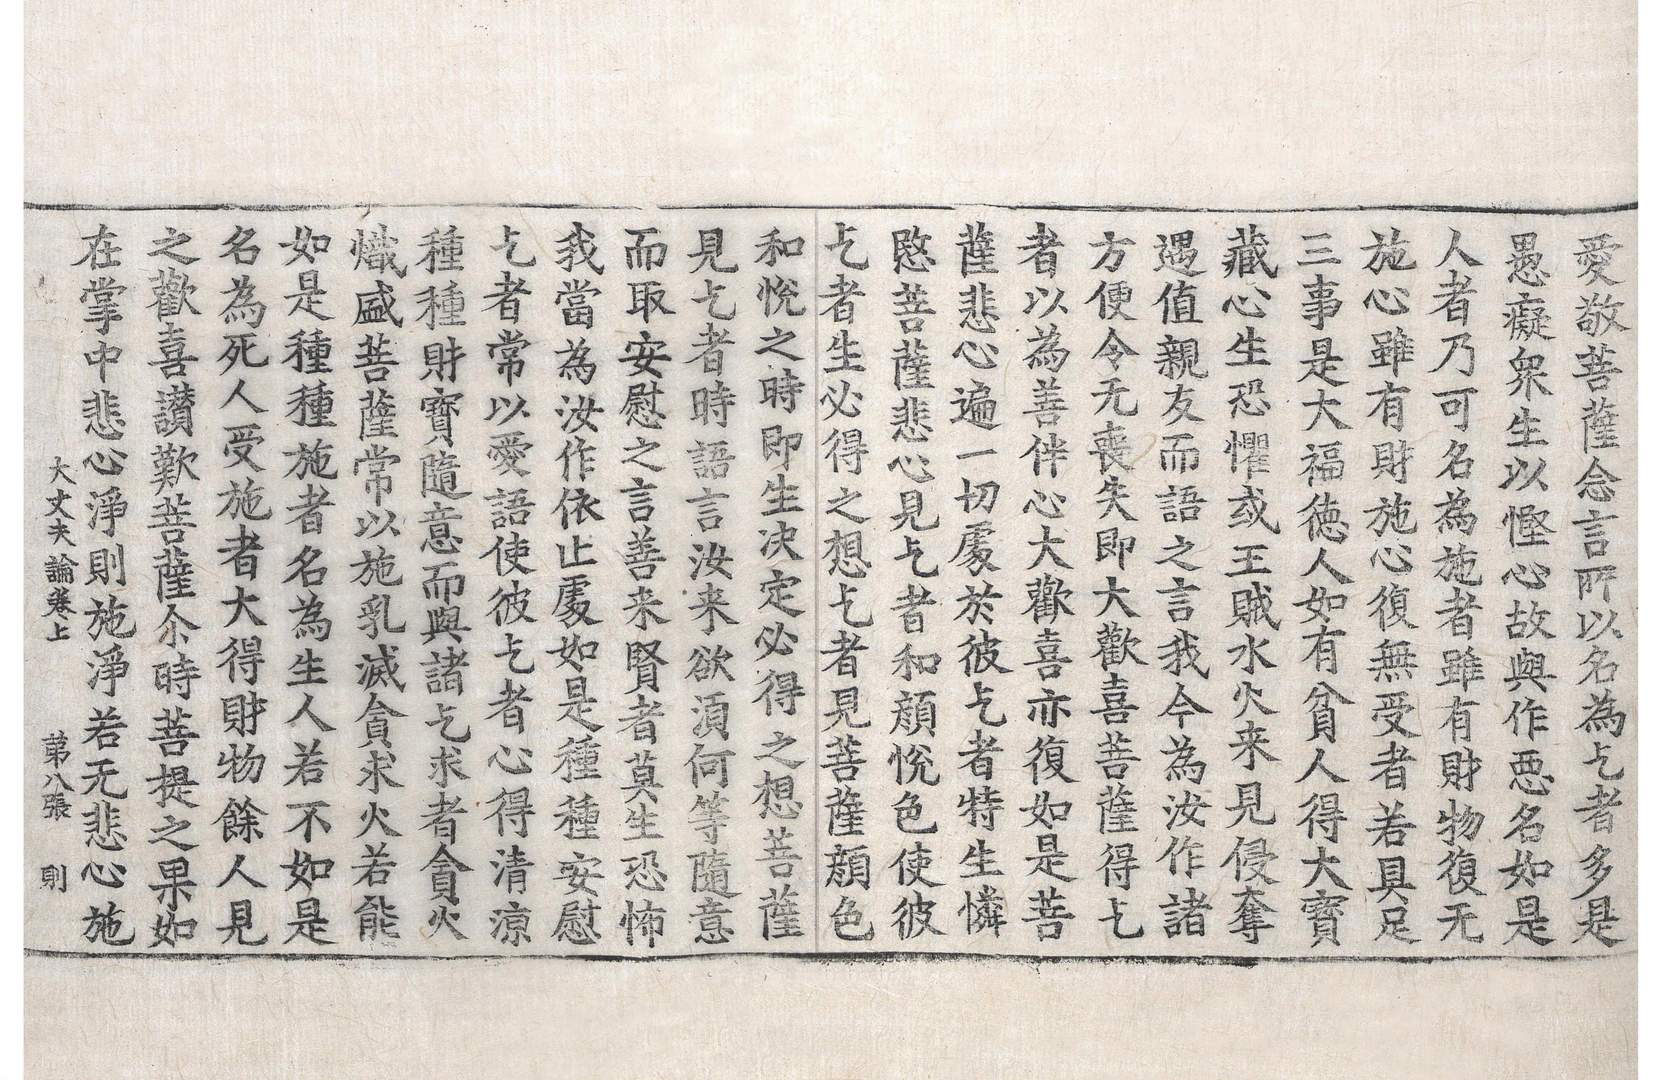 愛敬菩薩念言所以名為乞者多是
愚癡衆生以慳心故與作惡名如是
人者乃可名為施者雖有財物復无
施心雖有財施心復無受者若具足
三事是大福德人如有貧人得大寶
藏心生恐懼或王賊水火来見侵奪
遇值親友而語之言我今為汝作諸
方便令无喪失即大歡喜菩薩得乞
者以為善伴心大歡喜亦復如是菩
薩悲心遍一切處於彼乞者特生憐
愍菩薩悲心見乞者和顔悅色使彼
乞者生必得之想乞者見菩薩顔色
和悅之時即生决定必得之想菩薩
見乞者時語言汝来欲須何等隨意
而取安慰之言善来賢者莫生恐怖
我當為汝作依止處如是種種安慰
乞者常以愛語使彼乞者心得清涼
種種財寶隨意而與諸乞求者貪火
熾盛菩薩常以施乳滅貪求火若能
如是種種施者名為生人若不如是
名為死人受施者大得財物餘人見
之歡喜讃歎菩薩尒時菩提之果如
在掌中悲心淨則施淨若无悲心施
大丈夫論卷上　第八張　則